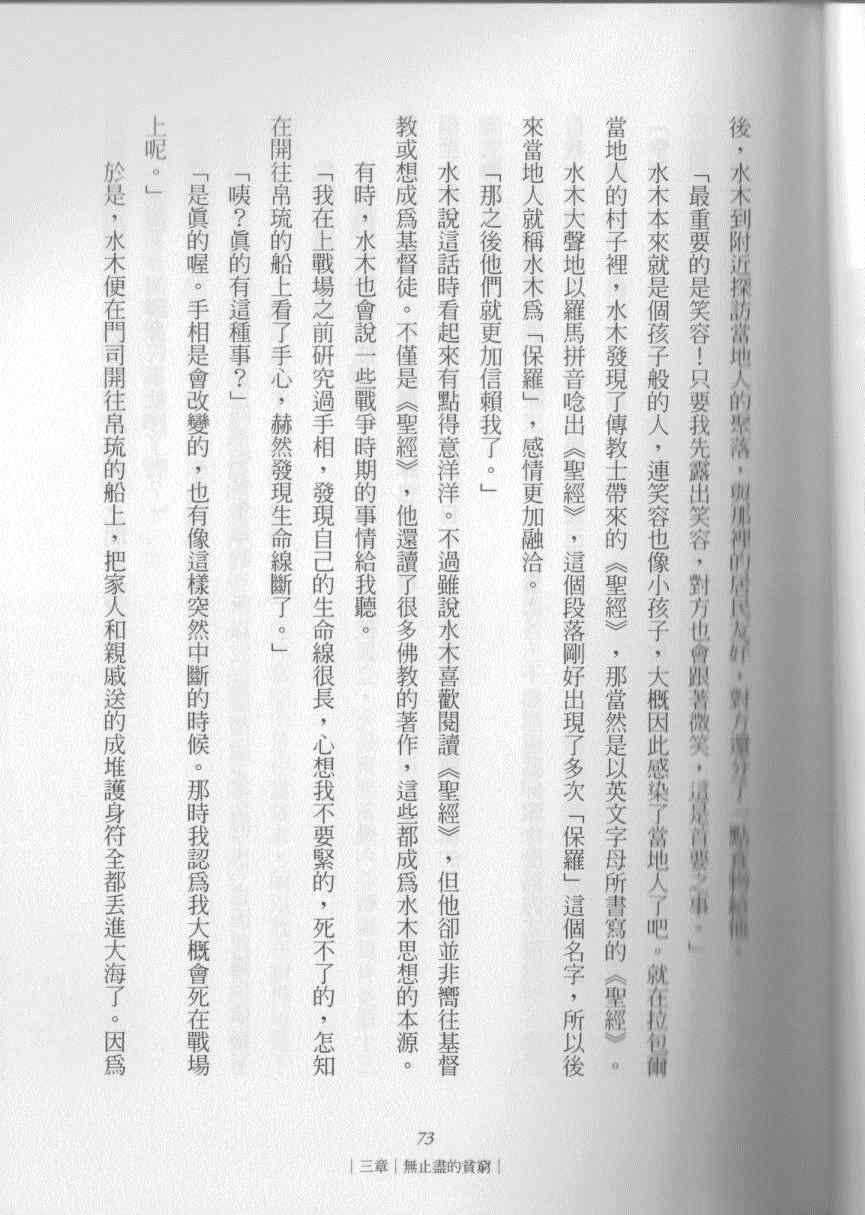 後，水木到附近探訪當地人的聚落，與那裡的居民友好，對方還分了一點食物給他。
「最重要的是笑容！只要我先露出笑容，對方也會跟著微笑，這是首要之事。」
水木本來就是個孩子般的人，連笑容也像小孩子，大概因此感染了當地人了吧。就在拉包爾
當地人的村子裡，水木發現了傳教士帶來的《聖經》，那當然是以英文字母所書寫的《聖經》。
水木大聲地以羅馬拼音唸出《聖經》，這個段落剛好出現了多次「保羅」這個名字，所以後
來當地人就稱水木爲「保羅」，感情更加融洽。
「那之後他們就更加信賴我了。」
水木說這話時看起來有點得意洋洋。不過雖說水木喜歡閱讀《聖經》，但他卻並非嚮往基督
教或想成爲基督徒。不僅是《聖經》，他還讀了很多佛教的著作，這些都成爲水木思想的本源。
有時，水木也會說一些戰爭時期的事情給我聽。
「我在上戰場之前研究過手相，發現自己的生命線很長，心想我不要緊的，死不了的，怎知
在開往帛琉的船上看了手心，赫然發現生命線斷了。」
「咦？眞的有這種事？」
「是眞的喔。手相是會改變的，也有像這樣突然中斷的時候。那時我認爲我大概會死在戰場
上呢。」
於是，水木便在門司開往帛琉的船上，把家人和親戚送的成堆護身符全都丟進大海了。因爲
73
|三章|無止盡的貧窮|